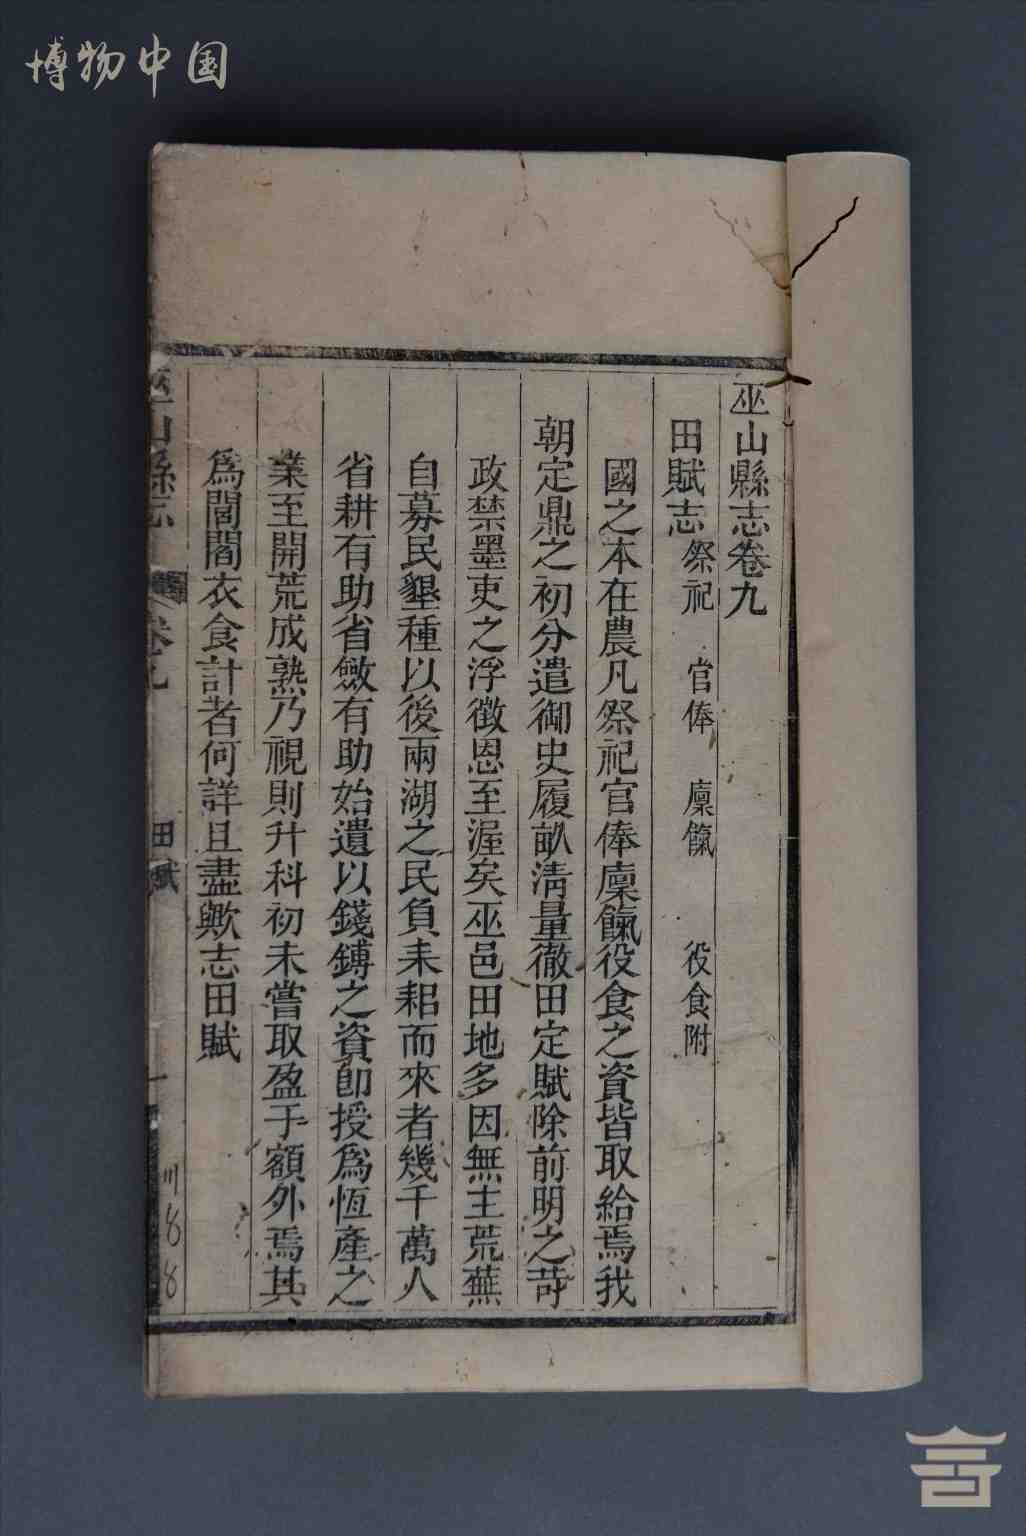 博物中国
巫山縣志卷九
田賦志 祭祀 官俸 廩餼 役食附
國之本在農凡祭祀官俸廩餼役食之資皆取給焉我
朝定鼎之初分遣御史履畝清量徹田定賦除前明之苛
政禁墨吏之浮徵恩至渥矣巫邑田地多因無主荒蕪
自募民墾種以後兩湖之民負耒耜而來者幾千萬人
省耕有助省斂有助始遺以錢鎛之資卽授爲恆產之
業至開荒成熟乃視則升科初未嘗取盈于額外焉其
爲閭閻衣食計者何詳且盡歟志田賦
巫山縣志 卷九 田賦 一
川88